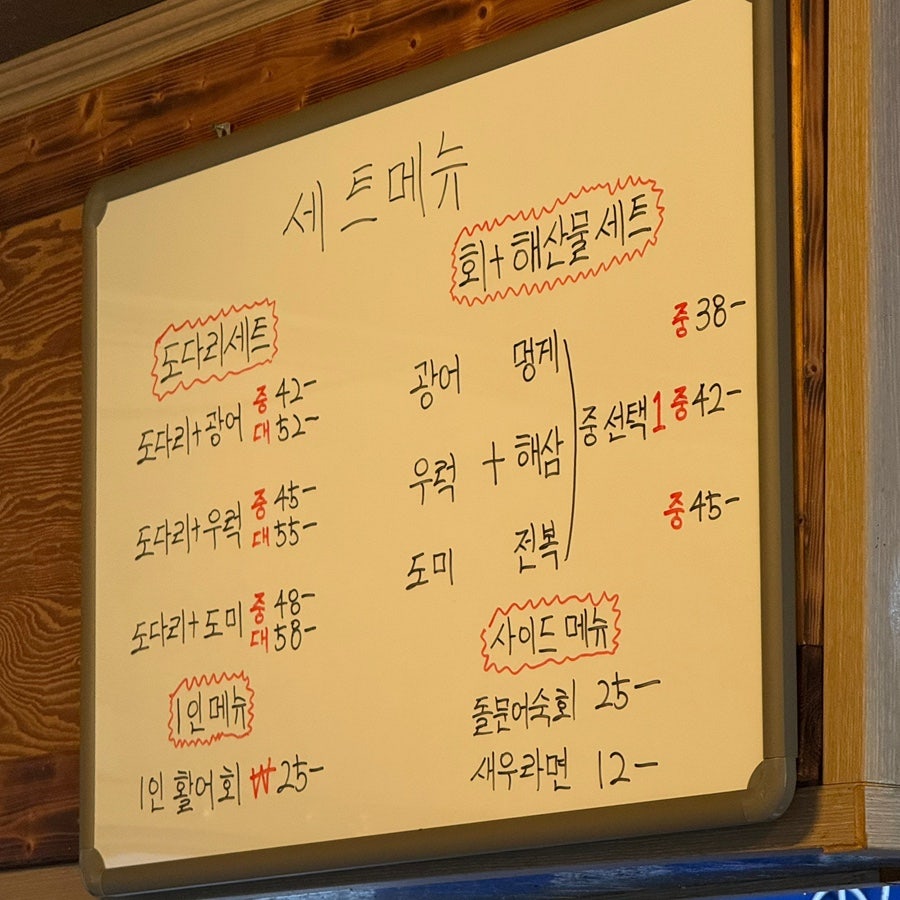 세트메뉴
도다리세트
도다리+광어 중 42-
대 52-
도다리+우럭 중 45-
대 55-
도다리+도미 중 48-
대 58-
1인메뉴
1인 활어회 ₩25-
회+해산물 세트
중 38-
광어 멍게
우럭 + 해삼 중 선택 1 중 42-
도미 전복
중 45-
사이드 메뉴
돌문어숙회 25-
새우라면 12-